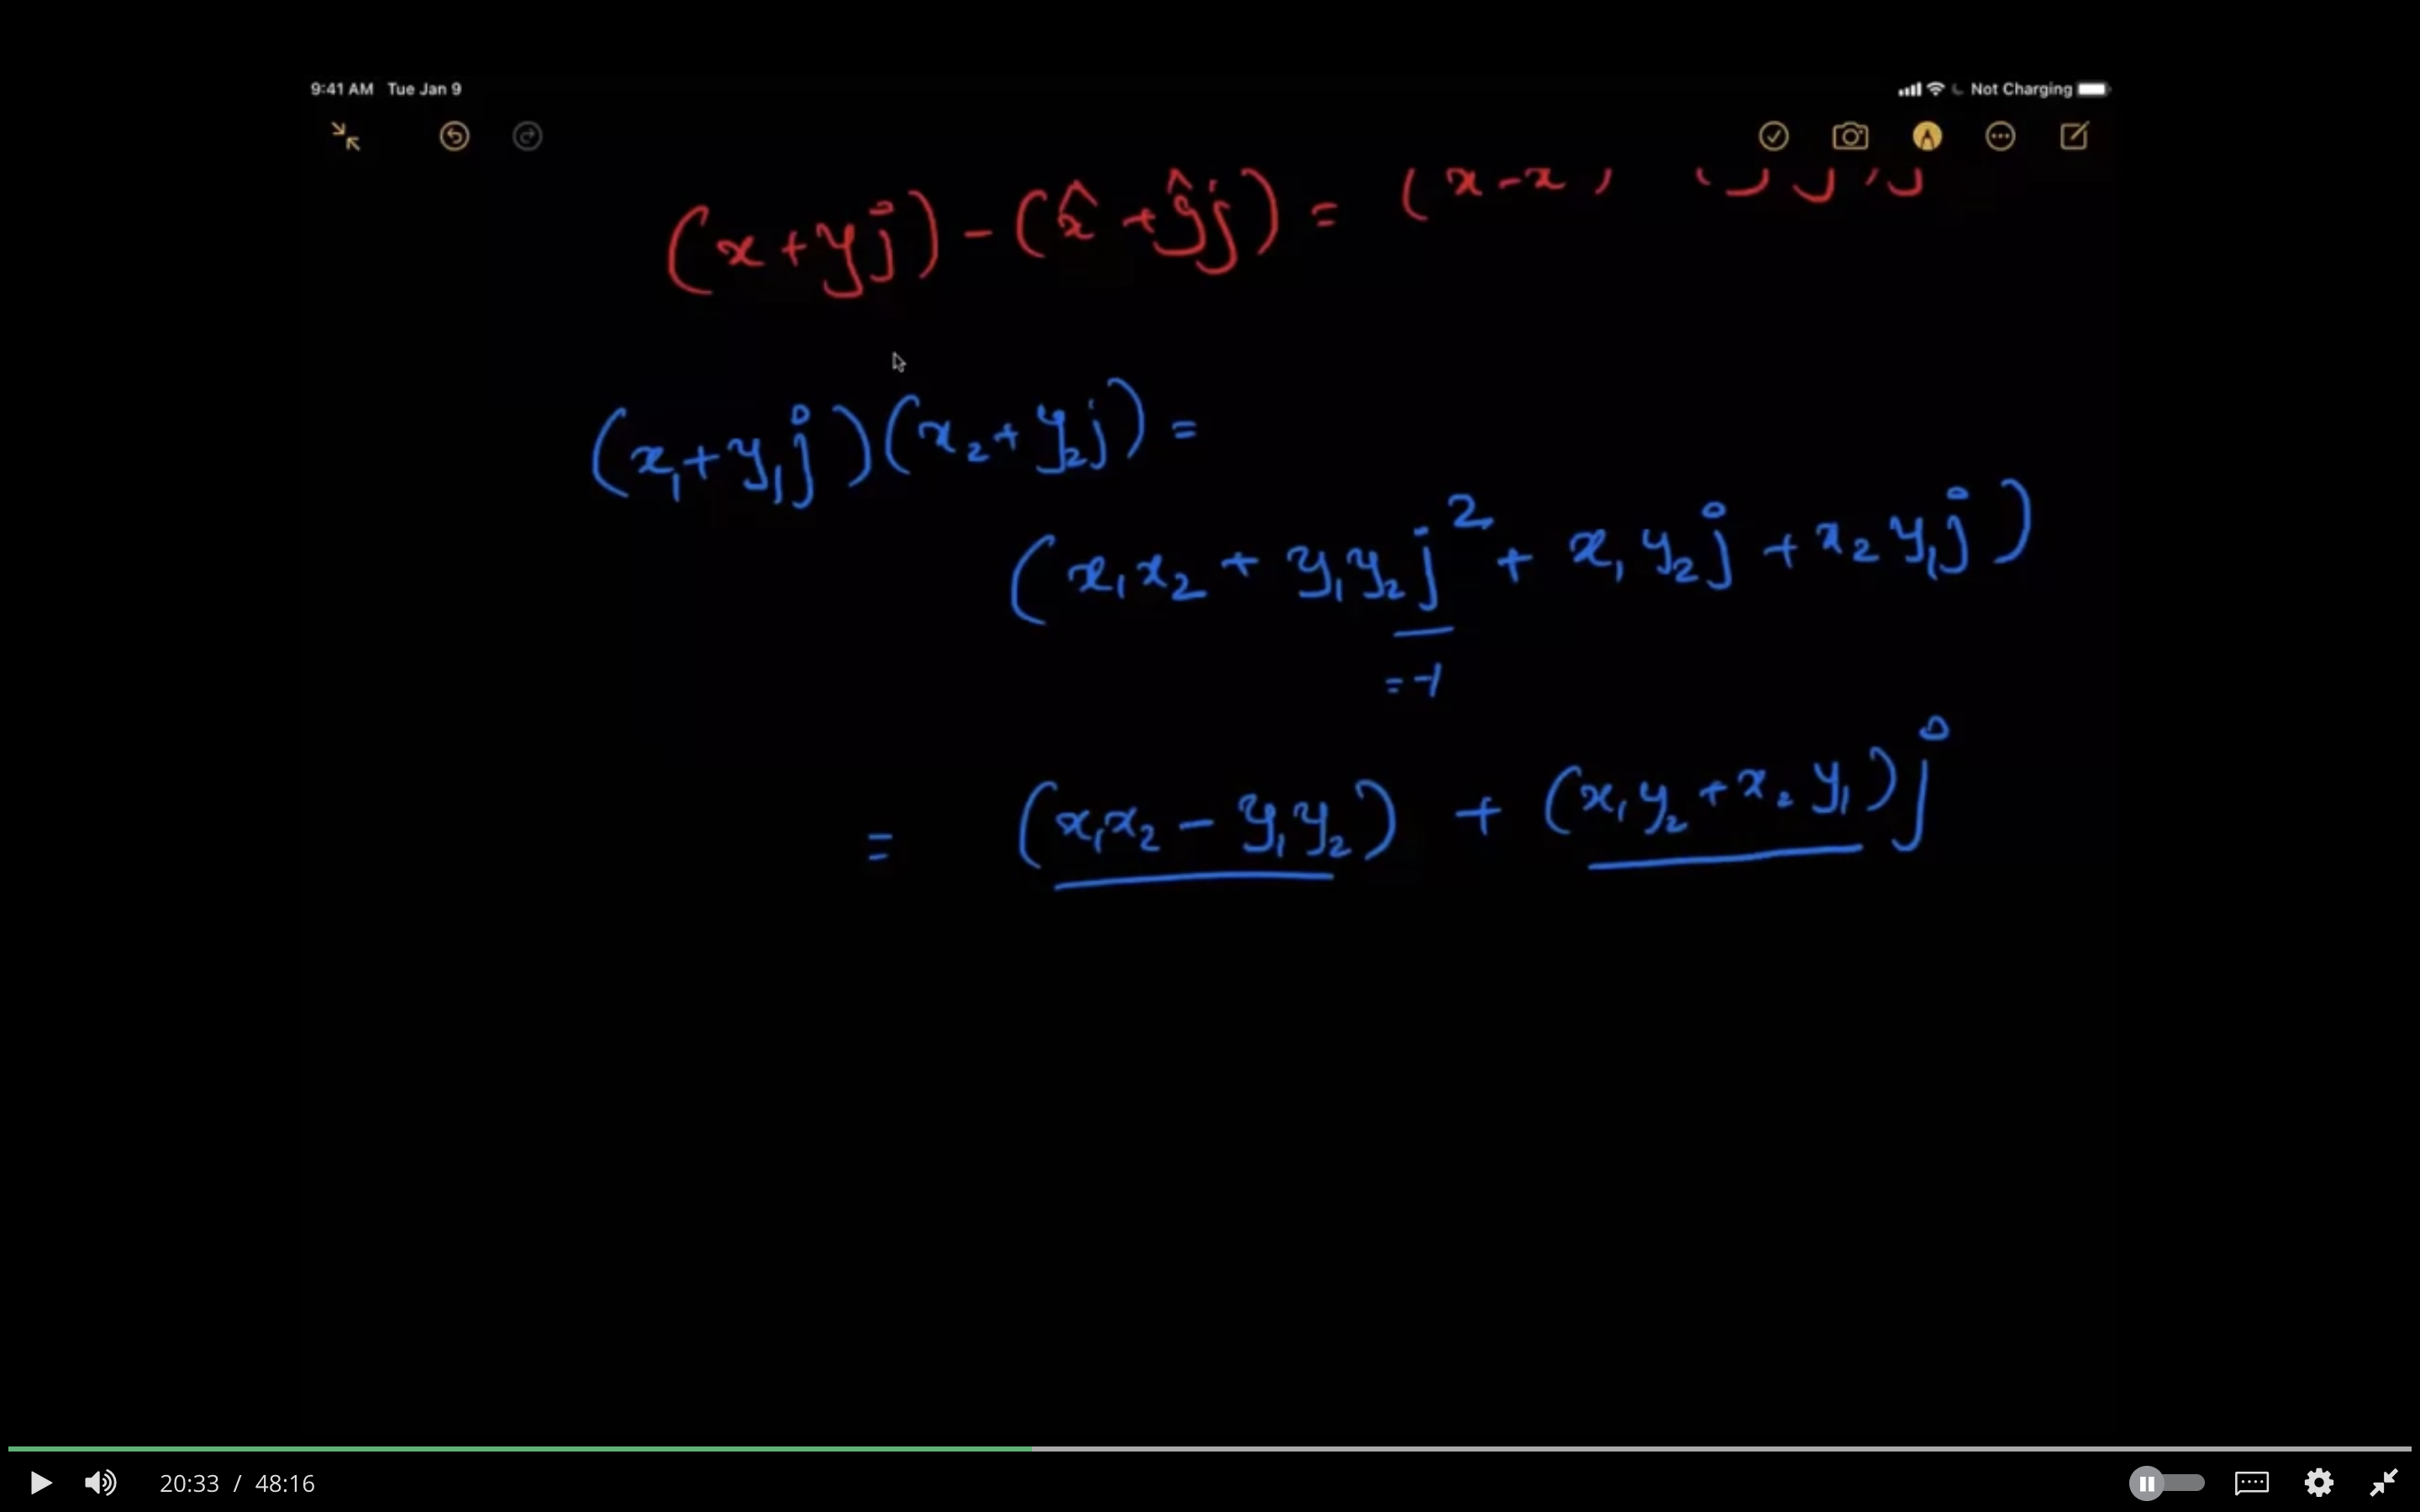 9:41 AM Tue Jan 9 Not Charging
(x+yj) - (x̂+ŷj) = (x-x
(x₁+y₁j)(x₂+y₂j) =
(x₁x₂ + y₁y₂j² + x₁y₂j + x₂y₁j)
= -1
= (x₁x₂ - y₁y₂) + (x₁y₂ + x₂y₁)j
20:33 / 48:16